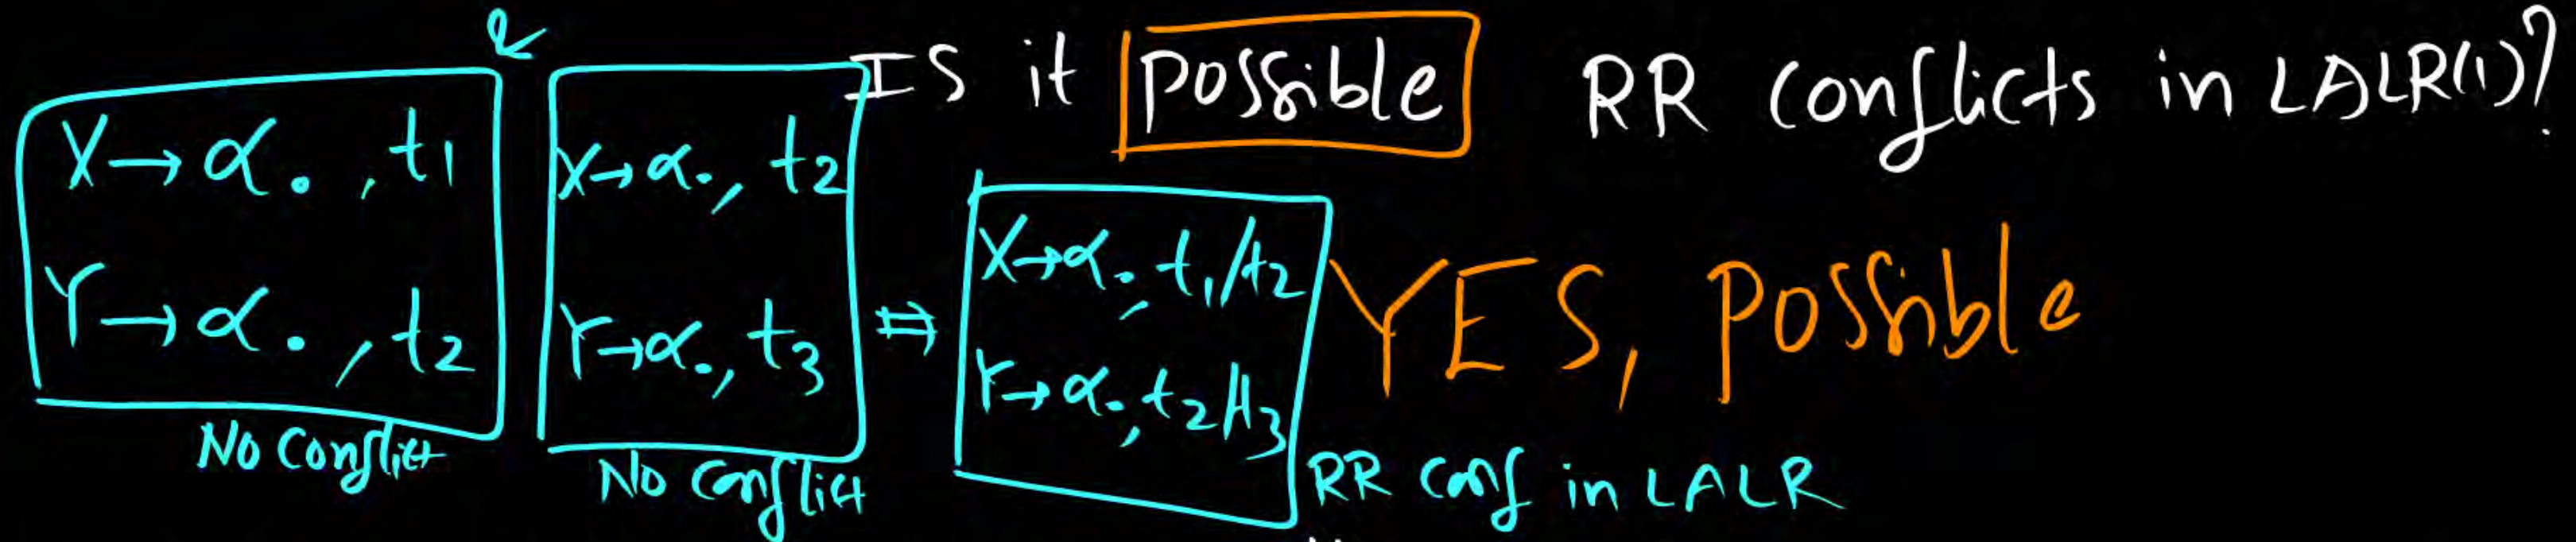 Is it possible RR conflicts in LALR(1)?
X→α., t1
Y→α., t2
No Conflict
X→α., t2
Y→α., t3
No Conflict
⇒
X→α., t1/t2
Y→α., t2/t3
RR conf in LALR
YES, possible